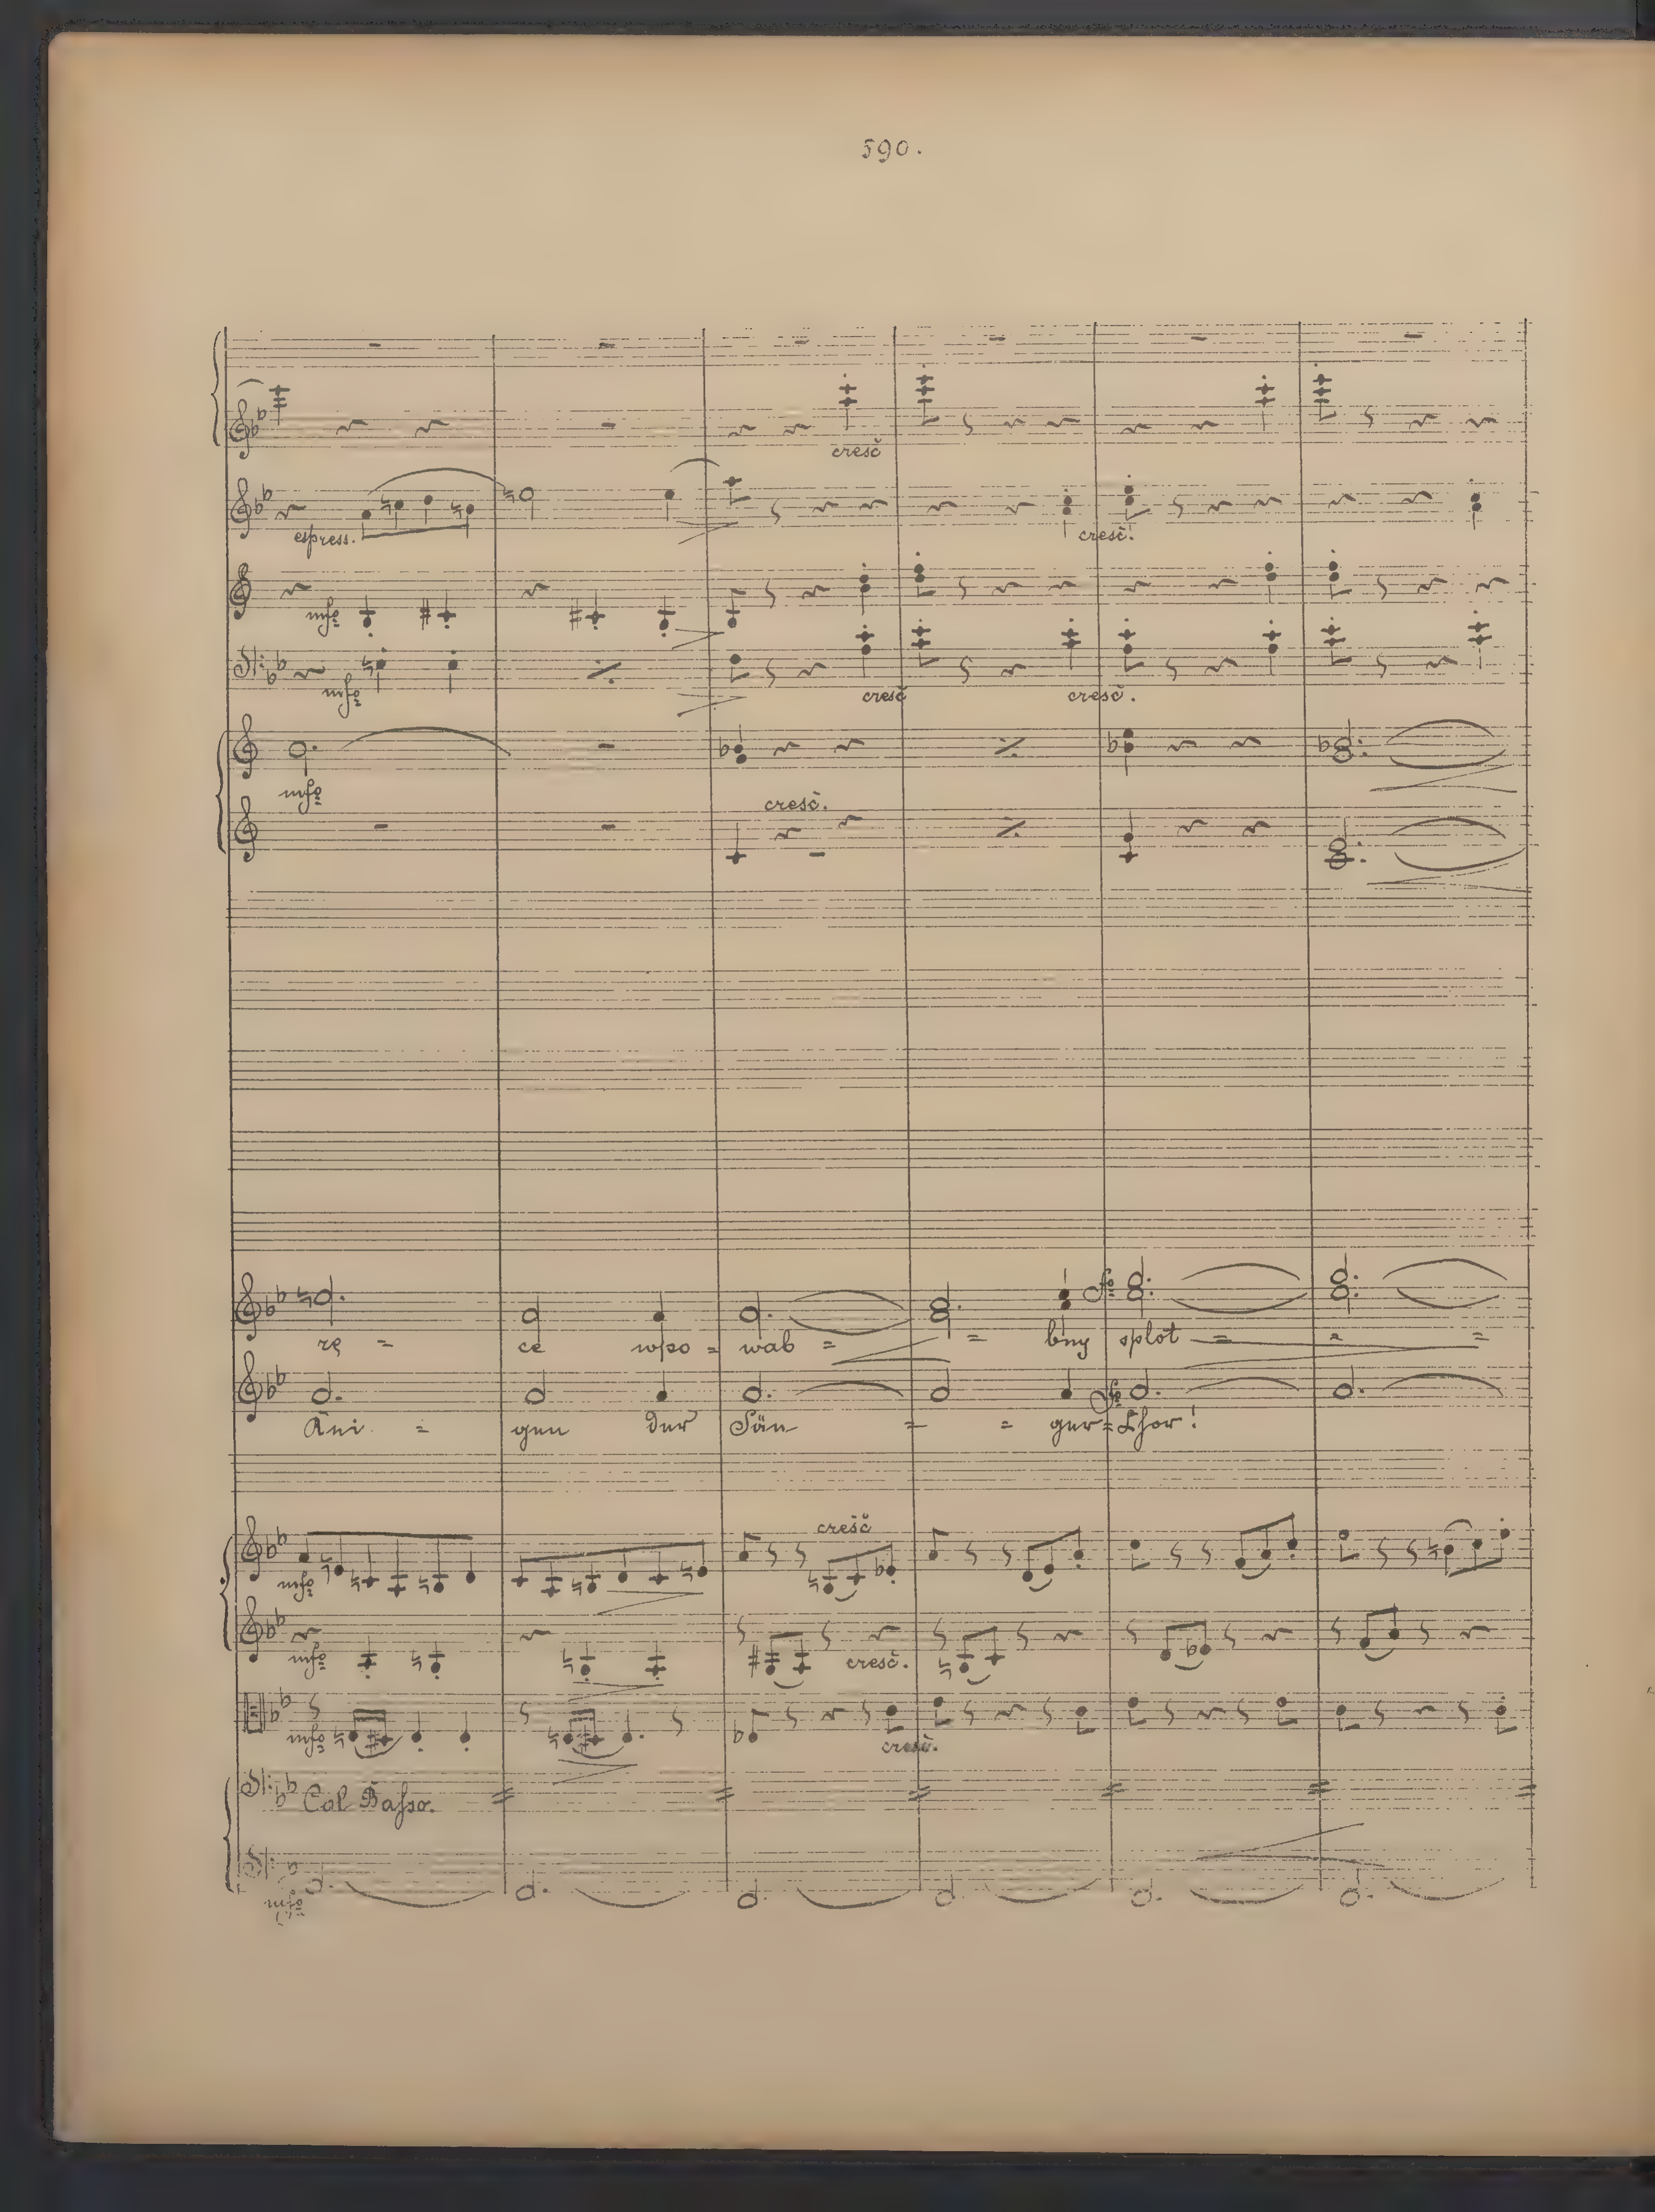 590.
cresč
espress.
cresč.
mfo
mfo
cresč
cresč.
mfo
cresč.
fo
rę = ce wpo = wab = = bny splot = = =
fo
gen der Sän = = ger = Chor!
cresč
mfo
mfo
cresč.
mfo
cresč.
Col Basso.
mfo